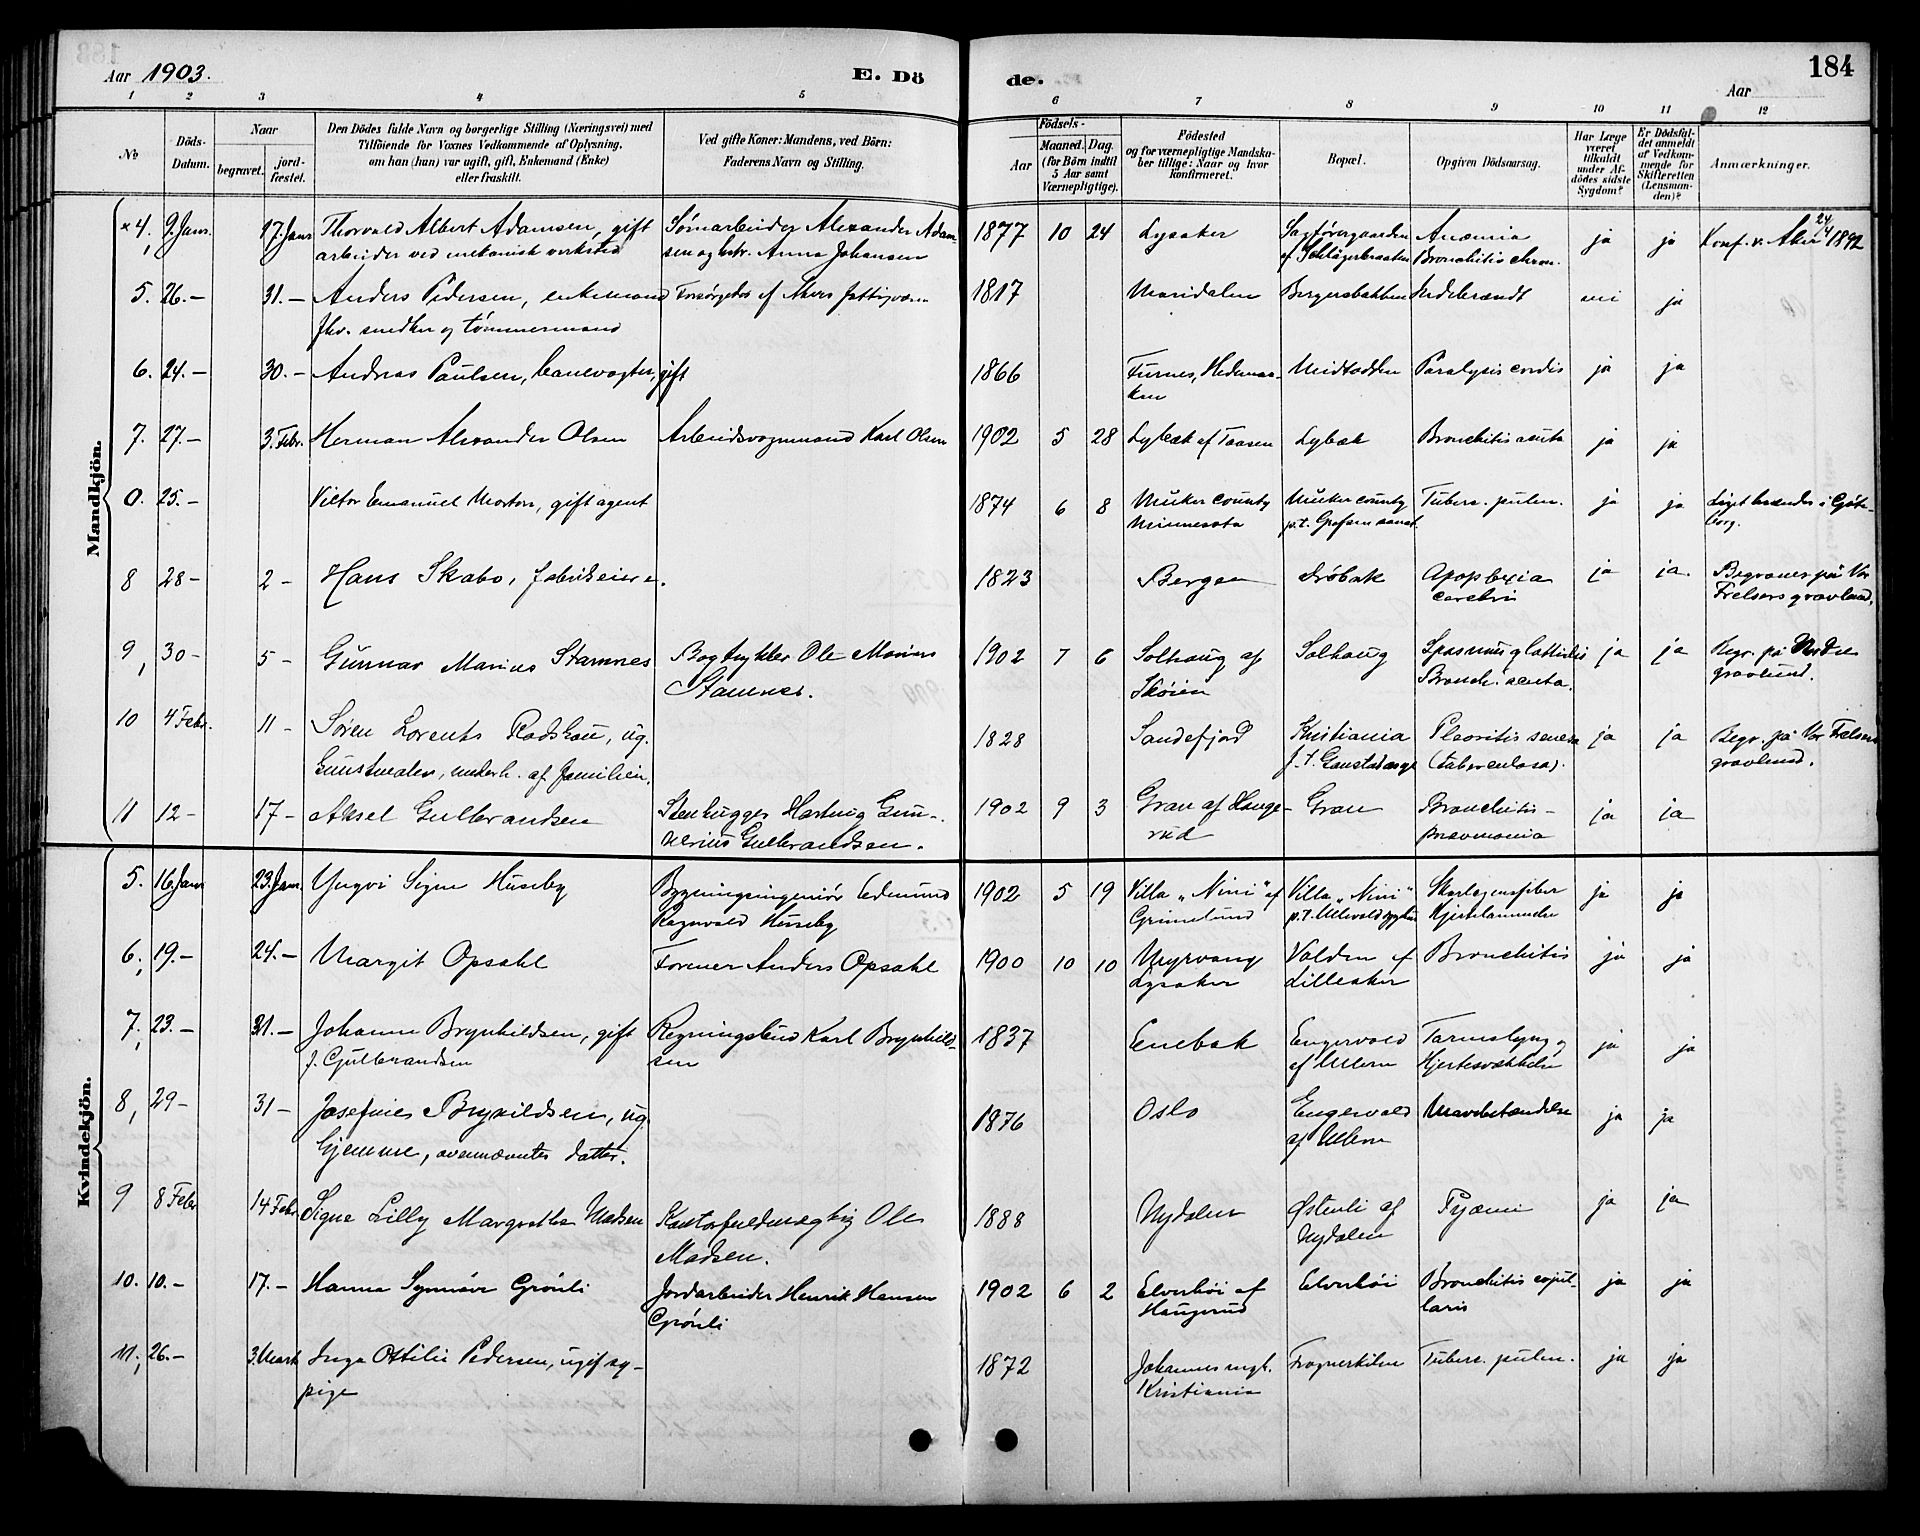 Aar 1903.
E. Dö
de.
184
Aar
1 2 3 4 5 6 7 8 9 10 11 12
No
Döds-Datum.
Naar
begravet.
jord-fæstet.
Den Dödes fulde Navn og borgerlige Stilling (Næringsvei) med
Tilföiende for Voxnes Vedkommende af Oplysning,
om han (hun) var ugift, gift, Enkemand (Enke)
eller fraskilt.
Ved gifte Koner: Mandens, ved Börn:
Faderens Navn og Stilling.
Födsels-
Aar
Maaned. Dag.
(for Börn indtil
5 Aar samt
Værnepligtige).
Födested
og for værnepligtige Mandska-
ber tillige: Naar og hvor
konfirmeret.
Bopæl.
Opgiven Dödsaarsag.
Har Læge
været
tilkaldt
under Af-
dödes sidste
Sygdom?
Er Dödsfal-
det anmeldt
af Vedkom-
mende for
Skifteretten
(Lensman-
den)?
Anmærkninger.
Mandkjön.
×4. 9. Janr. 17. Janr Thorvald Albert Adamsen, gift Alexander Adam- 1877 10 24 Lysaker Sagførergaarden Anæmia ja ja Konf. v. Aker 24/4 1892
arbeider ved mekanisk verksted sen og hstr. Anna Johansen af Bronchitis chron.
5. 26.- 31.- Anders Pedersen, enkemand 1817 Maridalen Bergersbakken ja
fhv. snedker og tømmermand
6. 24.- 30.- Andreas Paulsen, banevogter, gift 1866 Furnes, Hedemar- Midtodden Paralysis cordis ja ja
ken
7. 27.- 3. Febr. Herman Alexander Olsen Arbeidsvognmand Karl Olsen 1902 5 28 Lybæk af Taasen Lybæk Bronchitis acuta ja ja
0. 25.- Victor Emanuel Morton, gift agent 1874 6 8 Meeker county Meeker county Tuberc. pulm. ja ja Liget brændes i Gøte-
Minnesota p.t. Grefsen sanat. borg.
8 28- 2- Hans Skabo, fabrikeier. 1823 Bergen Drøbak Apoplexia ja ja. Begraves på Vor
cerebri Frelsers gravlund.
9, 30- 5- Gunnar Marius Stamnes Bogtrykker Ole Marius 1902 7 6 Solhaug af Solhaug Spasmus glottidis ja ja Begr. på Nordre
Stamnes. Skøien Bronch. acuta. gravlund.
10 4 Febr. 11- Søren Lorents Rodskou, ug. 1828 Sandefjord Kristiania ja ja Begr. på Vor Frelsers
underh. af familien. p.t. Gaustad asyl (tuberculosa). gravlund.
11 12- 17- Aksel Gulbrandsen Stenhugger Hartvig Gun- 1902 9 3 Gran af Hauge- Gran Bronchitis- ja ja
nerius Gulbrandsen. rud pnevmonia
Kvindekjön.
5. 16. Janr 23. Janr. Yngvi Signe Huseby Bygningsingeniør Edmund 1902 5 19 Villa "Nini" af Villa "Nini" Skarlagensfeber ja ja
Ragnvald Huseby Grimelund p.t. Ullevold sygehus Hjertelammelse
6, 19.- 24.- Margit Opsahl Former Anders Opsahl 1900 10 10 Myrvang Volden af Bronchitis ja ja
Lysaker Lilleaker
7, 23.- 31.- Johanne Brynhildsen, gift Regningsbud Karl Brynhild- 1837 Enebak Engervold Tarmslyng og ja ja
f. Gulbrandsen sen af Ullern Hjertesvækkelse
8, 29- 31- Josefine Brynildsen, ug. 1876 Oslo Engervold Mavebetændelse ja ja
hjemme, ovennævntes datter. af Ullern
9 8 Febr 14 Febr. Signe Lilly Margrethe Madsen Kontorfuldmægtig Ole 1888 Nydalen Østenli af Pyæmi ja ja
Madsen. Nydalen
10. 10.- 17.- Hanna Synnøve Grønli Jordarbeider Henrik Hansen 1902 6 2 Elverhøi af Elverhøi Bronchitis capil- ja ja
Grønli Haugerud laris
11, 26.- 3. Marts Inga Ottilie Pedersen, ugift sy- 1872 Johannes mgt. Frognerkilen Tuberc. pulm. ja ja
pige Kristiania